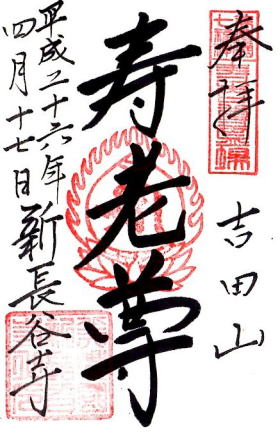 奉拝
吉田山
寿老尊
平成二十六年
四月十七日
新長谷寺